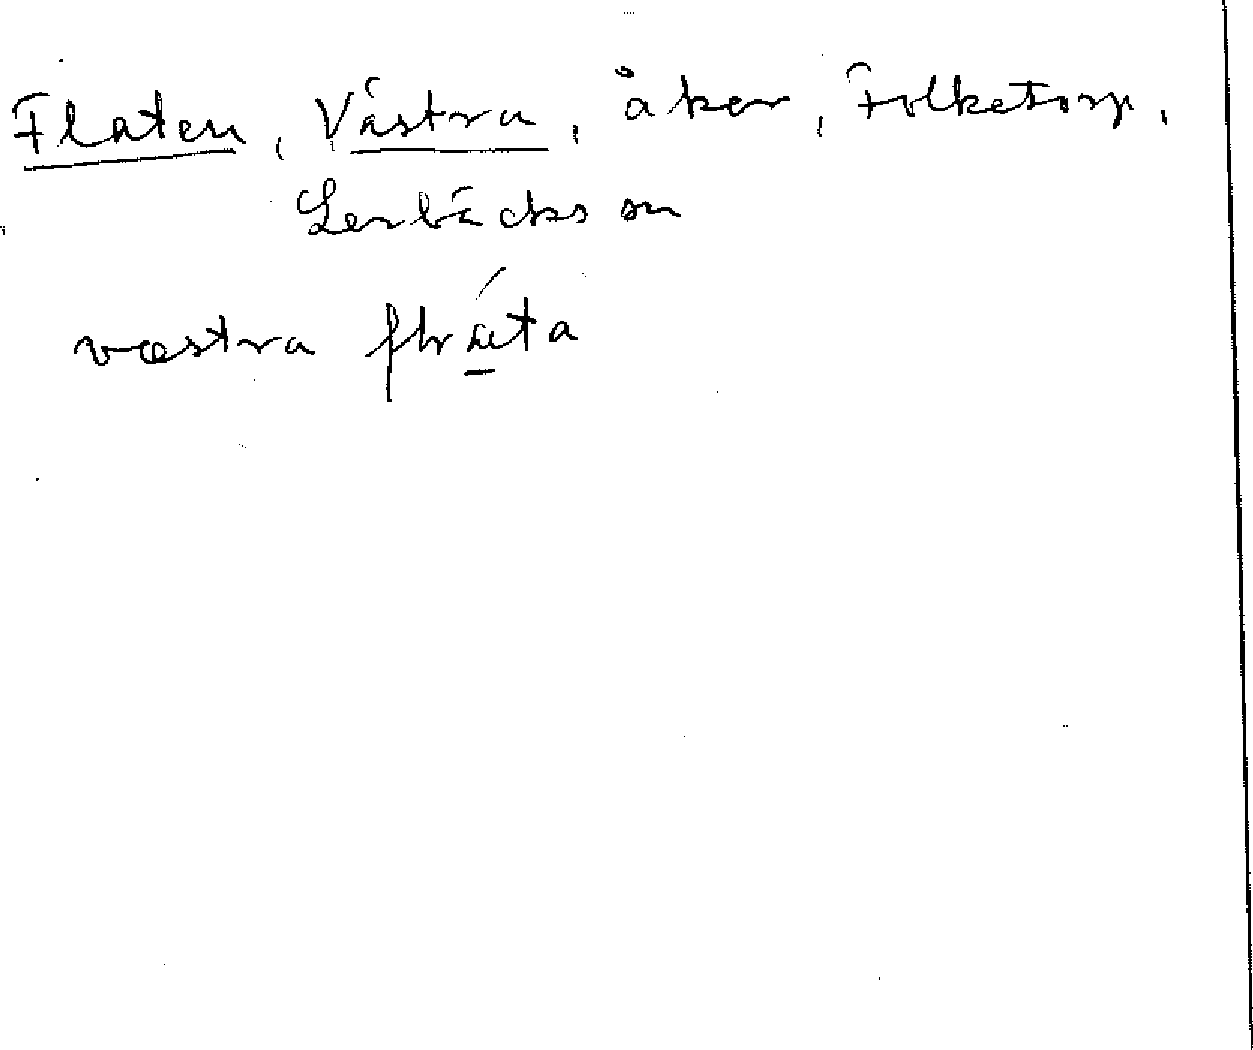 Flaten, Västra, åker, Folketorp,
Lerbäcks sn
væstra